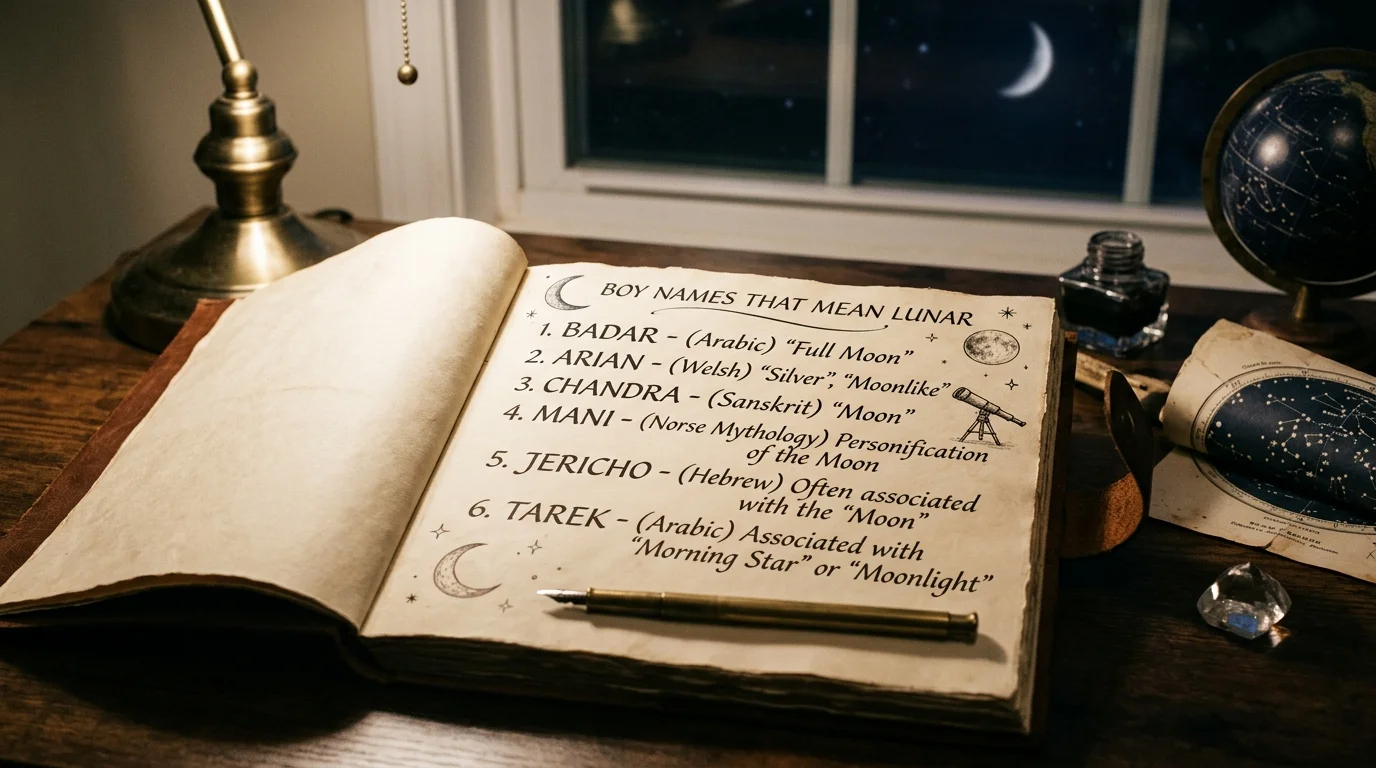 BOY NAMES THAT MEAN LUNAR
1. BADAR - (Arabic) "Full Moon"
2. ARIAN - (Welsh) "Silver", "Moonlike"
3. CHANDRA - (Sanskrit) "Moon"
4. MANI - (Norse Mythology) Personification
of the Moon
5. JERICHO - (Hebrew) Often associated
with the "Moon"
6. TAREK - (Arabic) Associated with
"Morning Star" or "Moonlight"